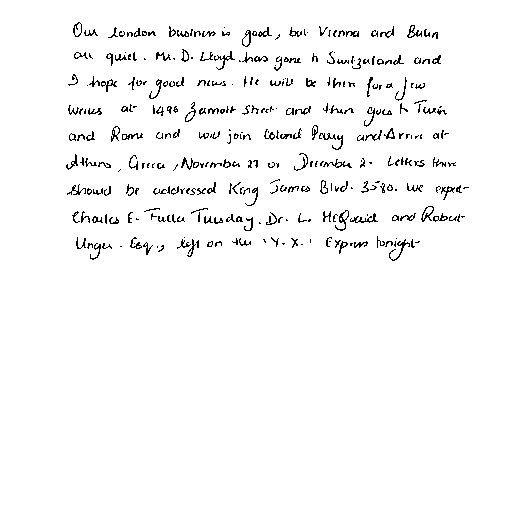 Our london business is good, but Vienna and Berlin
are quiet. Mr. D. Lloyd has gone to Switzerland and
I hope for good news. He will be there for a few
weeks at 1496 Zermott Street and then goes to Turin
and Rome and will join Colonel Parry and Arrive at
Athens, Greece, November 27 or December 2. Letters there
should be addressed King James Blvd. 3580. We expect
Charles E. Fuller Tuesday. Dr. L. McQuaid and Robert
Unger. Esq., left on the 'Y.X.' Express tonight